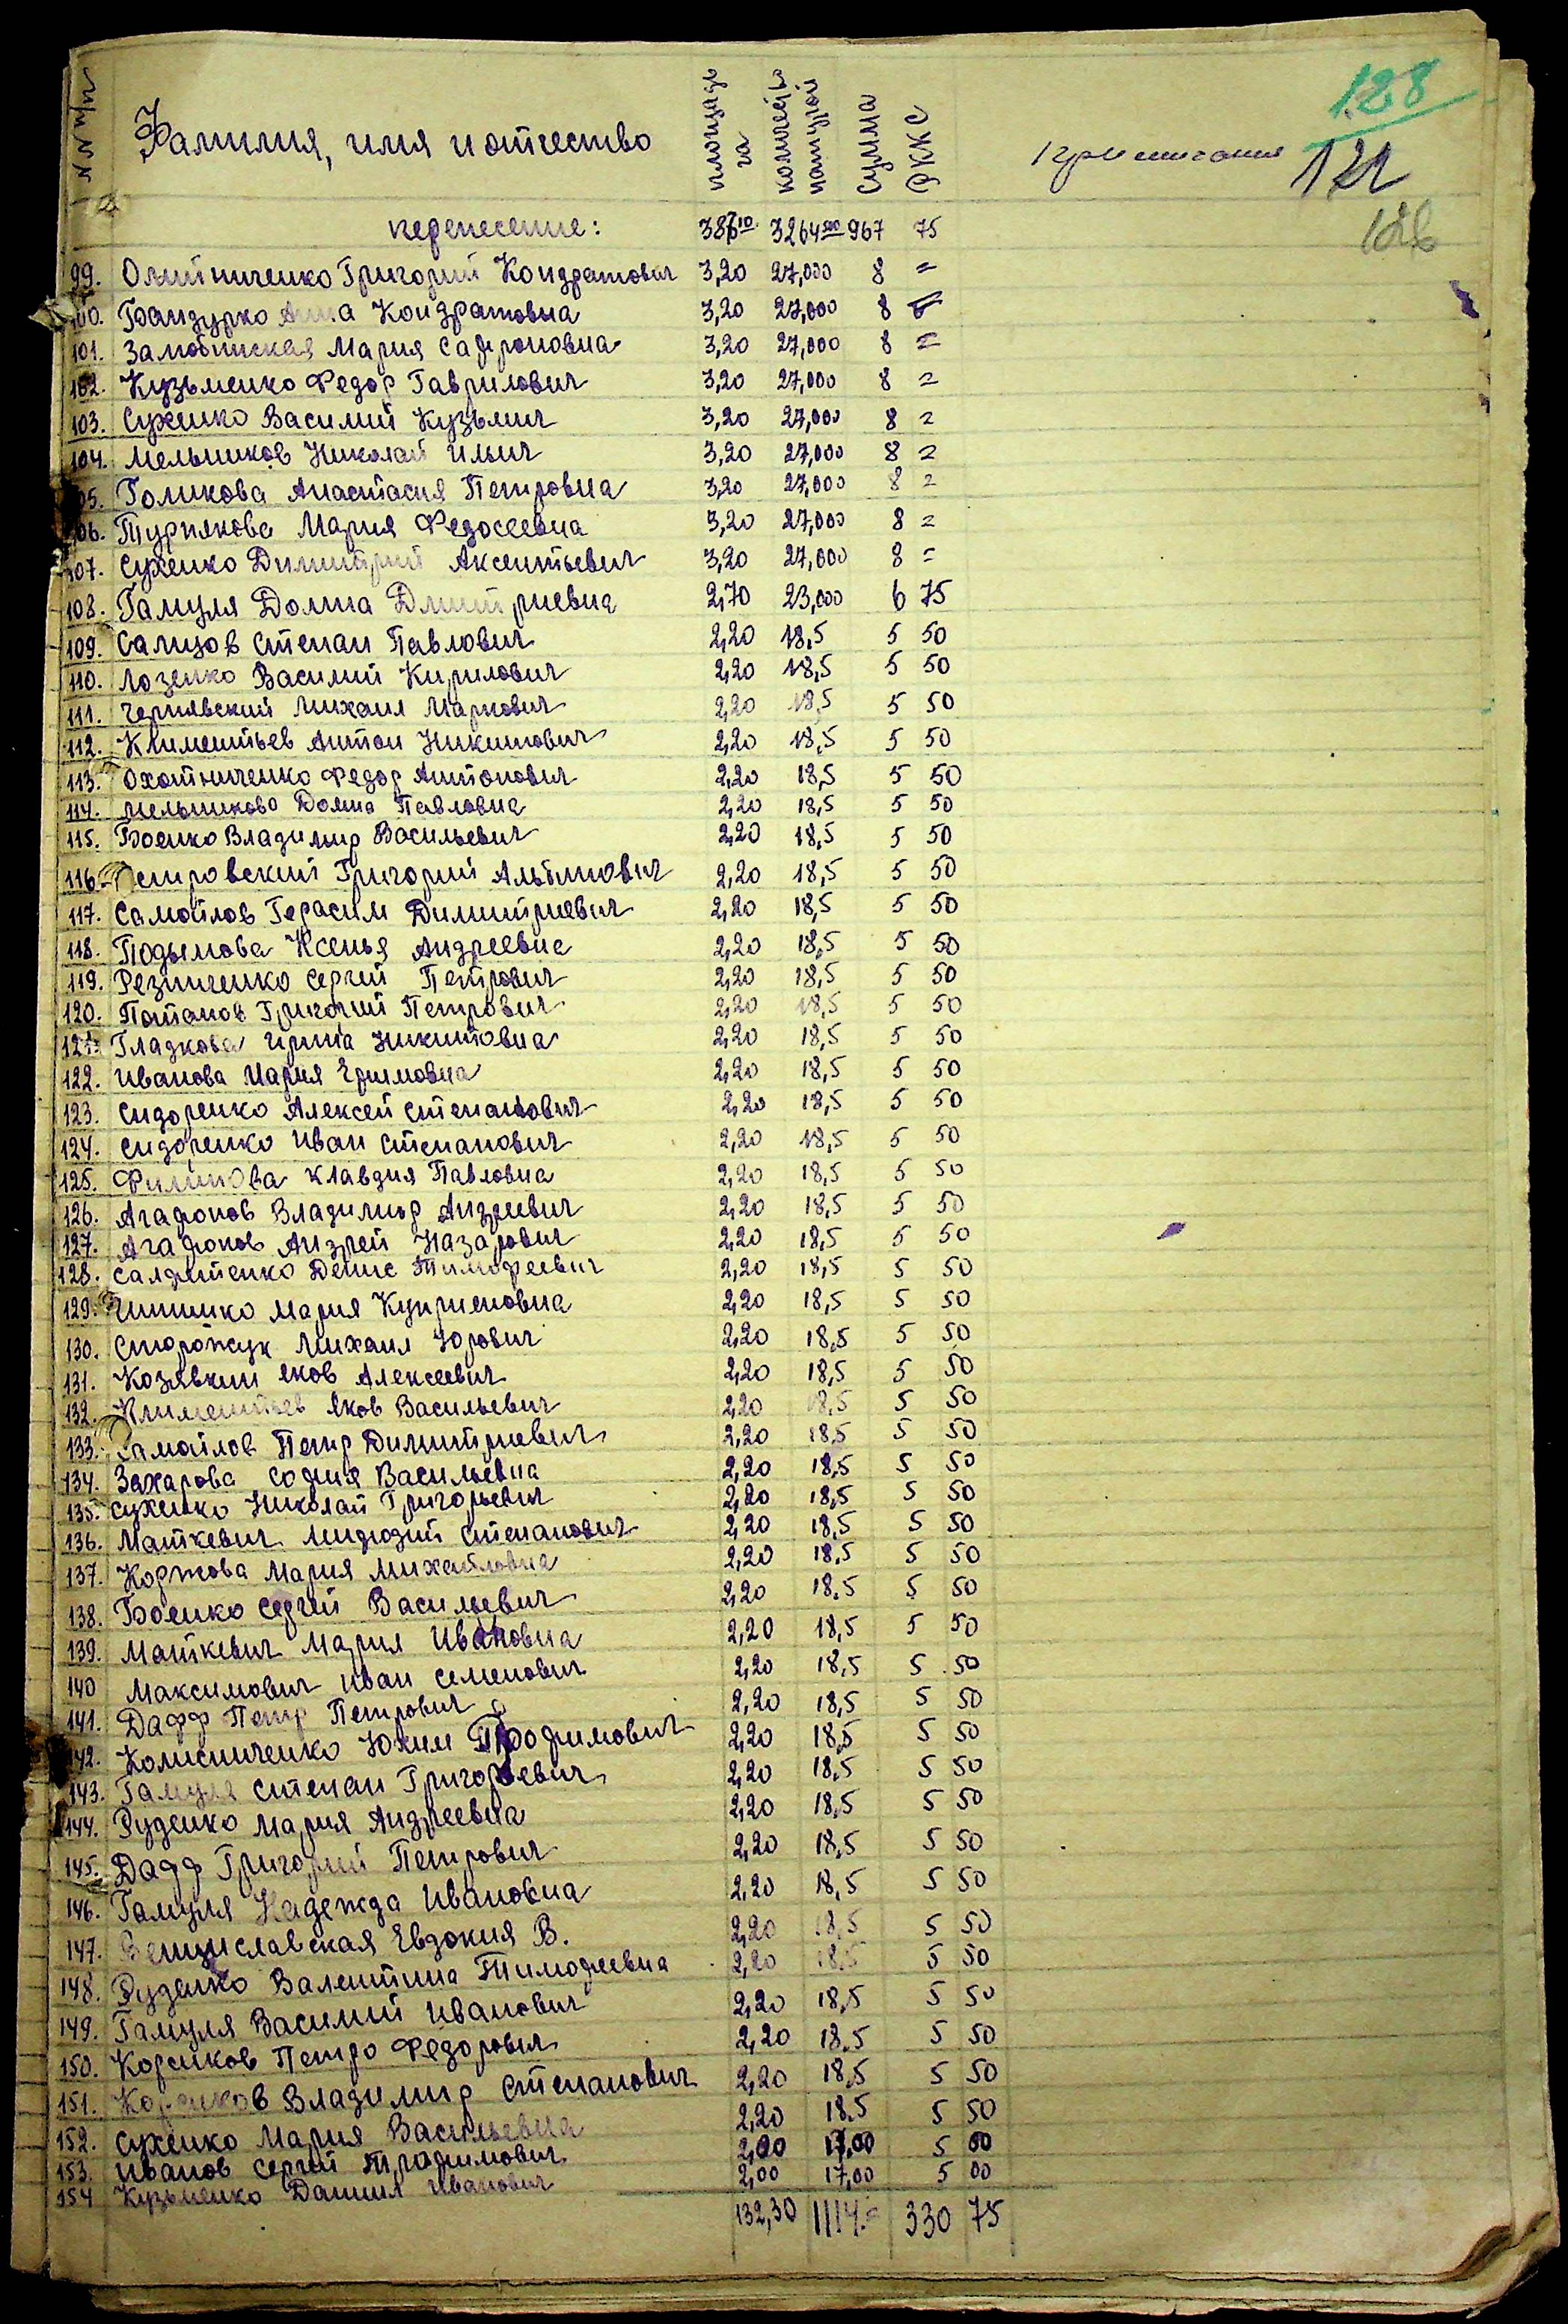 128
121
126
N N п/п Фамилия, имя и отчество площадь га количество натурой Сумма ФККС Примечания
перенесение: 387,10 3264,00 967 75
99. Охотниченко Григорий Кондратович 3,20 27,000 8 =
100. Бандурко Анна Кондратовна 3,20 27,000 8 =
101. Замобинская Мария Сафроновна 3,20 27,000 8 =
102. Кузьменко Федор Гаврилович 3,20 27,000 8 =
103. Сухенко Василий Кузьмич 3,20 27,000 8 =
104. Мельников Николай Ильич 3,20 27,000 8 =
105. Голикова Анастасия Петровна 3,20 27,000 8 =
106. Турлякова Мария Федосеевна 3,20 27,000 8 =
107. Сухенко Димитрий Аксентьевич 3,20 27,000 8 =
108. Гамуля Домна Дмитриевна 2,70 23,000 6 75
109. Самцов Степан Павлович 2,20 18,5 5 50
110. Лозенко Василий Кирилович 2,20 18,5 5 50
111. Чернявский Михаил Маркович 2,20 18,5 5 50
112. Климентьев Антон Никитович 2,20 18,5 5 50
113. Охотниченко Федор Антонович 2,20 18,5 5 50
114. Мельникова Домна Павловна 2,20 18,5 5 50
115. Боенко Владимир Васильевич 2,20 18,5 5 50
116. Петровский Григорий Альбинович 2,20 18,5 5 50
117. Самойлов Герасим Димитриевич 2,20 18,5 5 50
118. Подымова Ксенья Андреевна 2,20 18,5 5 50
119. Резниченко Сергей Петрович 2,20 18,5 5 50
120. Потапов Григорий Петрович 2,20 18,5 5 50
121. Гладкова Ирина Никитовна 2,20 18,5 5 50
122. Иванова Мария Ефимовна 2,20 18,5 5 50
123. Сидоренко Алексей Степанович 2,20 18,5 5 50
124. Сидоренко Иван Степанович 2,20 18,5 5 50
125. Филипова Клавдия Павловна 2,20 18,5 5 50
126. Агафонов Владимир Андреевич 2,20 18,5 5 50
127. Агафонов Андрей Назарович 2,20 18,5 5 50
128. Салфитенко Денис Тимофеевич 2,20 18,5 5 50
129. Мария Куприяновна 2,20 18,5 5 50
130. Сторожук Михаил Юрович 2,20 18,5 5 50
131. Козявкин Яков Алексеевич 2,20 18,5 5 50
132. Климентьев Яков Васильевич 2,20 18,5 5 50
133. Самойлов Петр Димитриевич 2,20 18,5 5 50
134. Захарова София Васильевна 2,20 18,5 5 50
135. Сухенко Николай Григорьевич 2,20 18,5 5 50
136. Маткевич Степанович 2,20 18,5 5 50
137. Коржова Мария Михайловна 2,20 18,5 5 50
138. Боенко Сергей Васильевич 2,20 18,5 5 50
139. Маткевич Мария Ивановна 2,20 18,5 5 50
140 Максимович Иван Семенович 2,20 18,5 5 50
141. Дафф Петр Петрович 2,20 18,5 5 50
142. Колисниченко Юхим Трофимович 2,20 18,5 5 50
143. Гамуля Степан Григорьевич 2,20 18,5 5 50
144. Руденко Мария Андреевна 2,20 18,5 5 50
145. Дафф Григорий Петрович 2,20 18,5 5 50
146. Гамуля Надежда Ивановна 2,20 18,5 5 50
147. Венциславская Евдокия В. 2,20 18,5 5 50
148. Руденко Валентина Тимофеевна 2,20 18,5 5 50
149. Гамуля Василий Иванович 2,20 18,5 5 50
150. Корсиков Петро Федорович 2,20 18,5 5 50
151. Корсиков Владимир Степанович 2,20 18,5 5 50
152. Сухенко Мария Васильевна 2,20 18,5 5 50
153. Иванов Сергей Трафимович 2,00 17,00 5 00
154 Кузьменко Даниил Иванович 2,00 17,00 5 00
132,30 1114.= 330 75